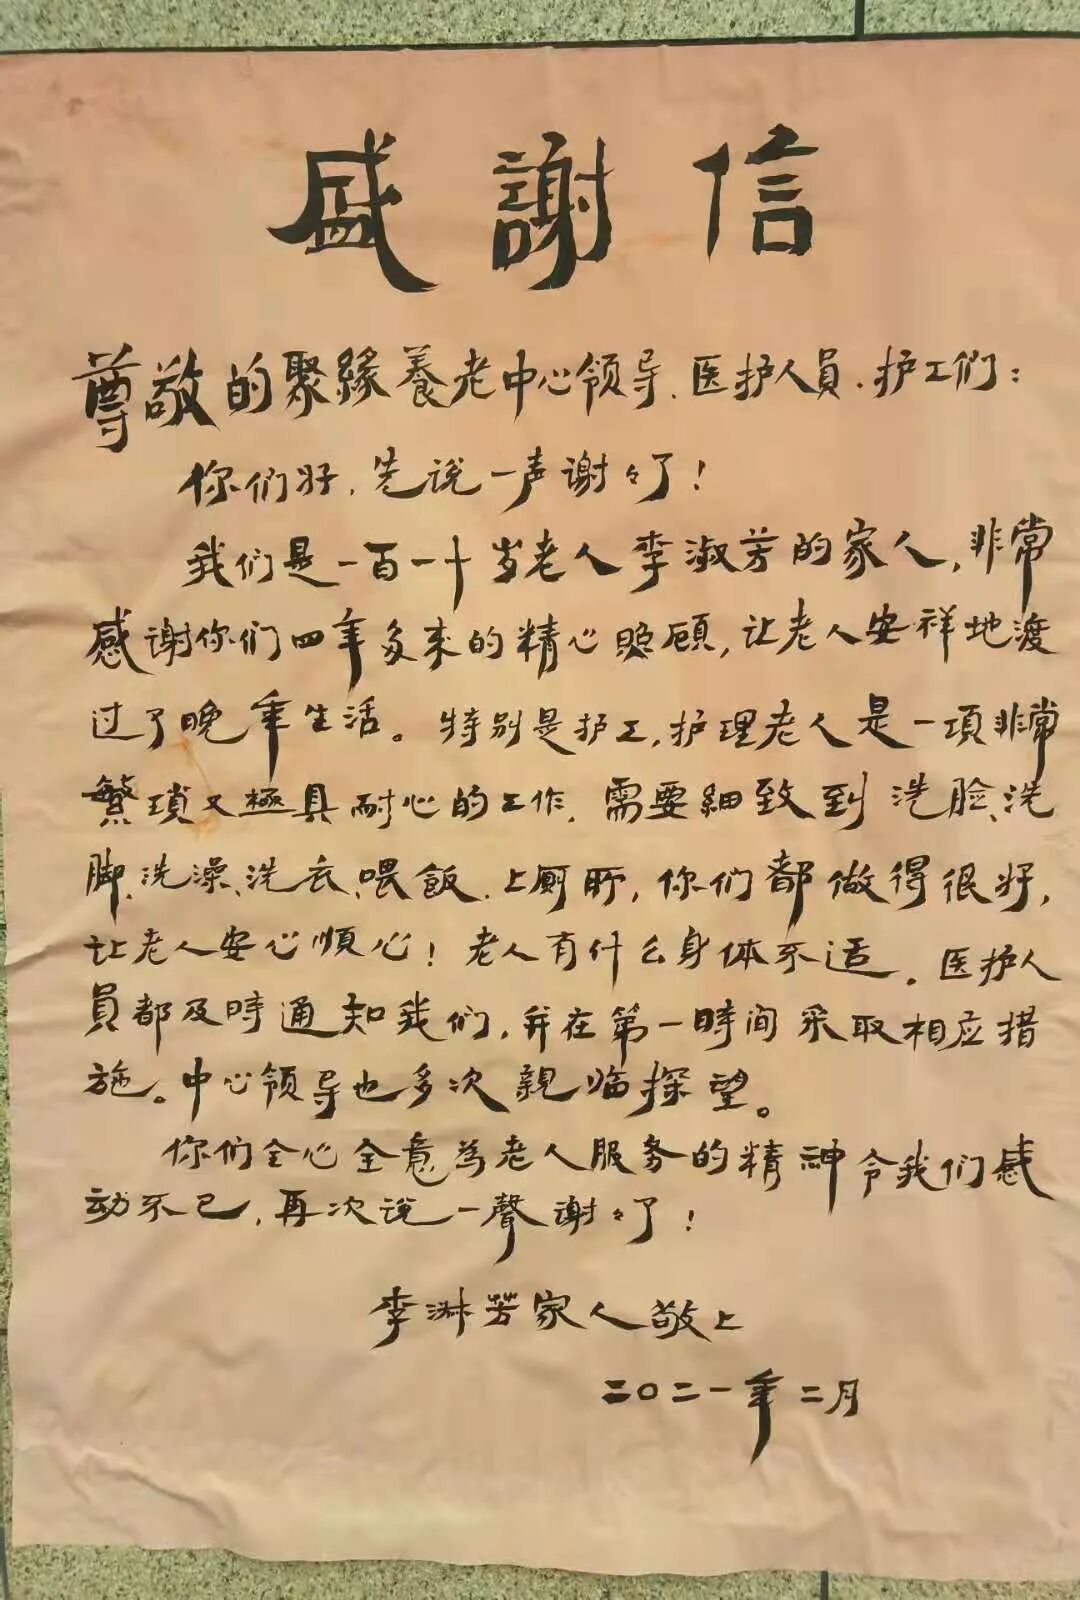 感謝信
尊敬的聚緣養老中心领导、医护人員、护工们：
你们好，先说一声谢々了！
我们是一百一十岁老人李淑芳的家人，非常
感谢你们四年多来的精心照顾，让老人安祥地渡
过了晚年生活。特别是护工，护理老人是一項非常
繁瑣又極具耐心的工作，需要細致到洗脸、洗
脚、洗澡、洗衣、喂飯、上厕所，你们都做得很好，
让老人安心順心！老人有什么身体不适，医护人
員都及時通知我们，并在第一時间采取相应措
施。中心领导也多次親临探望。
你们全心全意為老人服务的精神令我们感
动不已，再次说一聲谢々了！
李淑芳家人敬上
二〇二一年二月